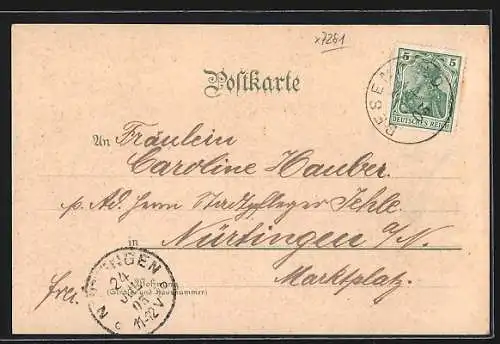 x7261
Postkarte
5 5
DEUTSCHES REICH
BESEN
An Fräulein
Caroline Hauber
p. Ad. Herrn Stadtpfleger Jehle.
in Nürtingen a/N.
Marktplatz.
frei.
Wohnung
(Straße und Hausnummer)
NÜRTINGEN
24
11-12 V